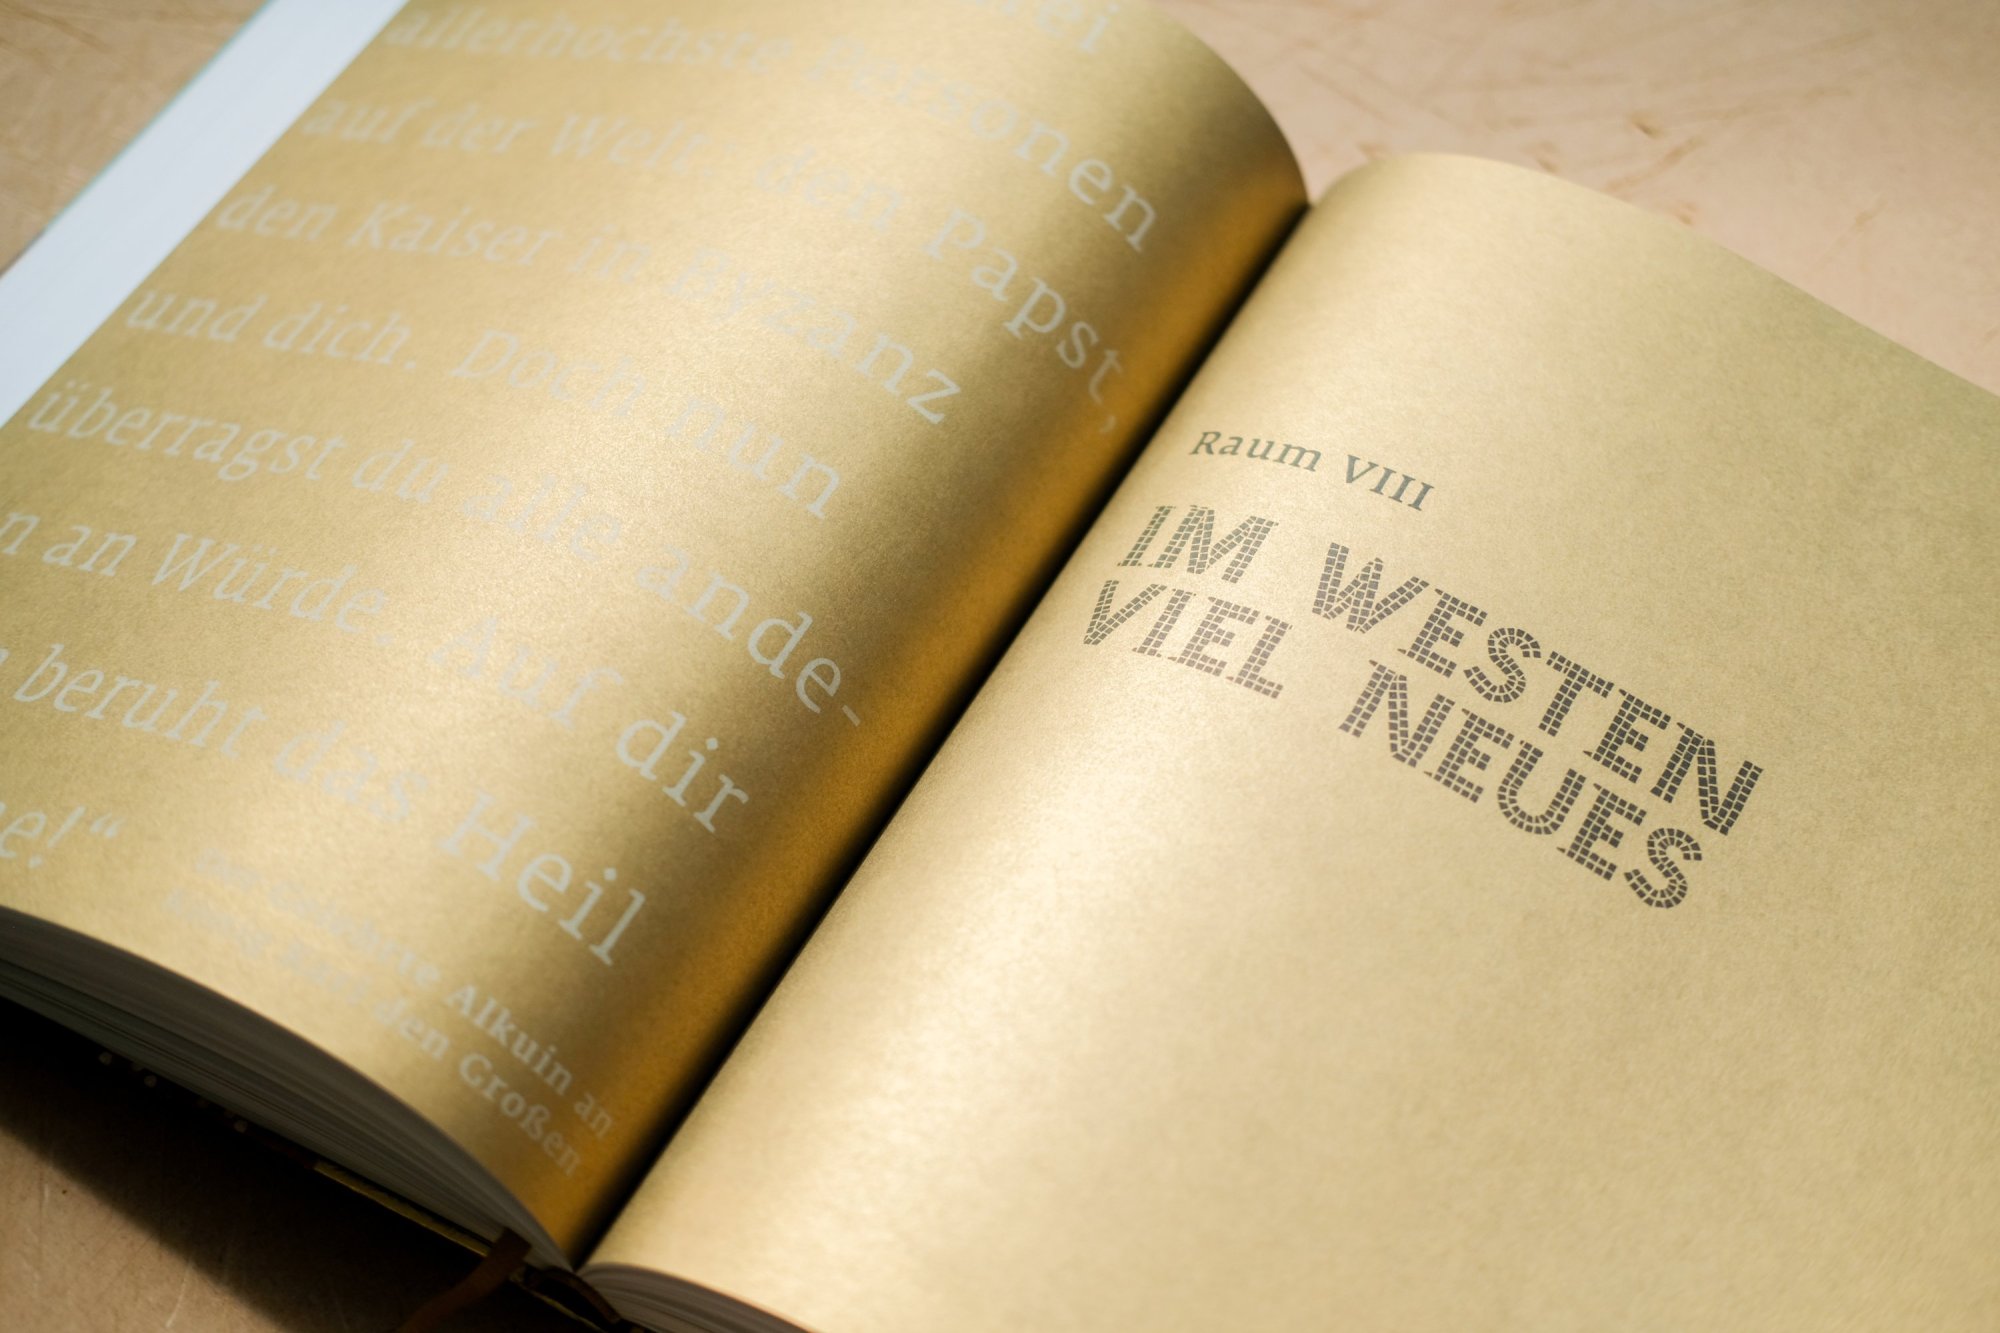 drei
allerhöchste Personen
auf der Welt: den Papst,
den Kaiser in Byzanz
und dich. Doch nun
überragst du alle ande-
n an Würde. Auf dir
beruht das Heil
e!“
Der Gelehrte Alkuin an
König Karl den Großen
Raum VIII
IM WESTEN
VIEL NEUES